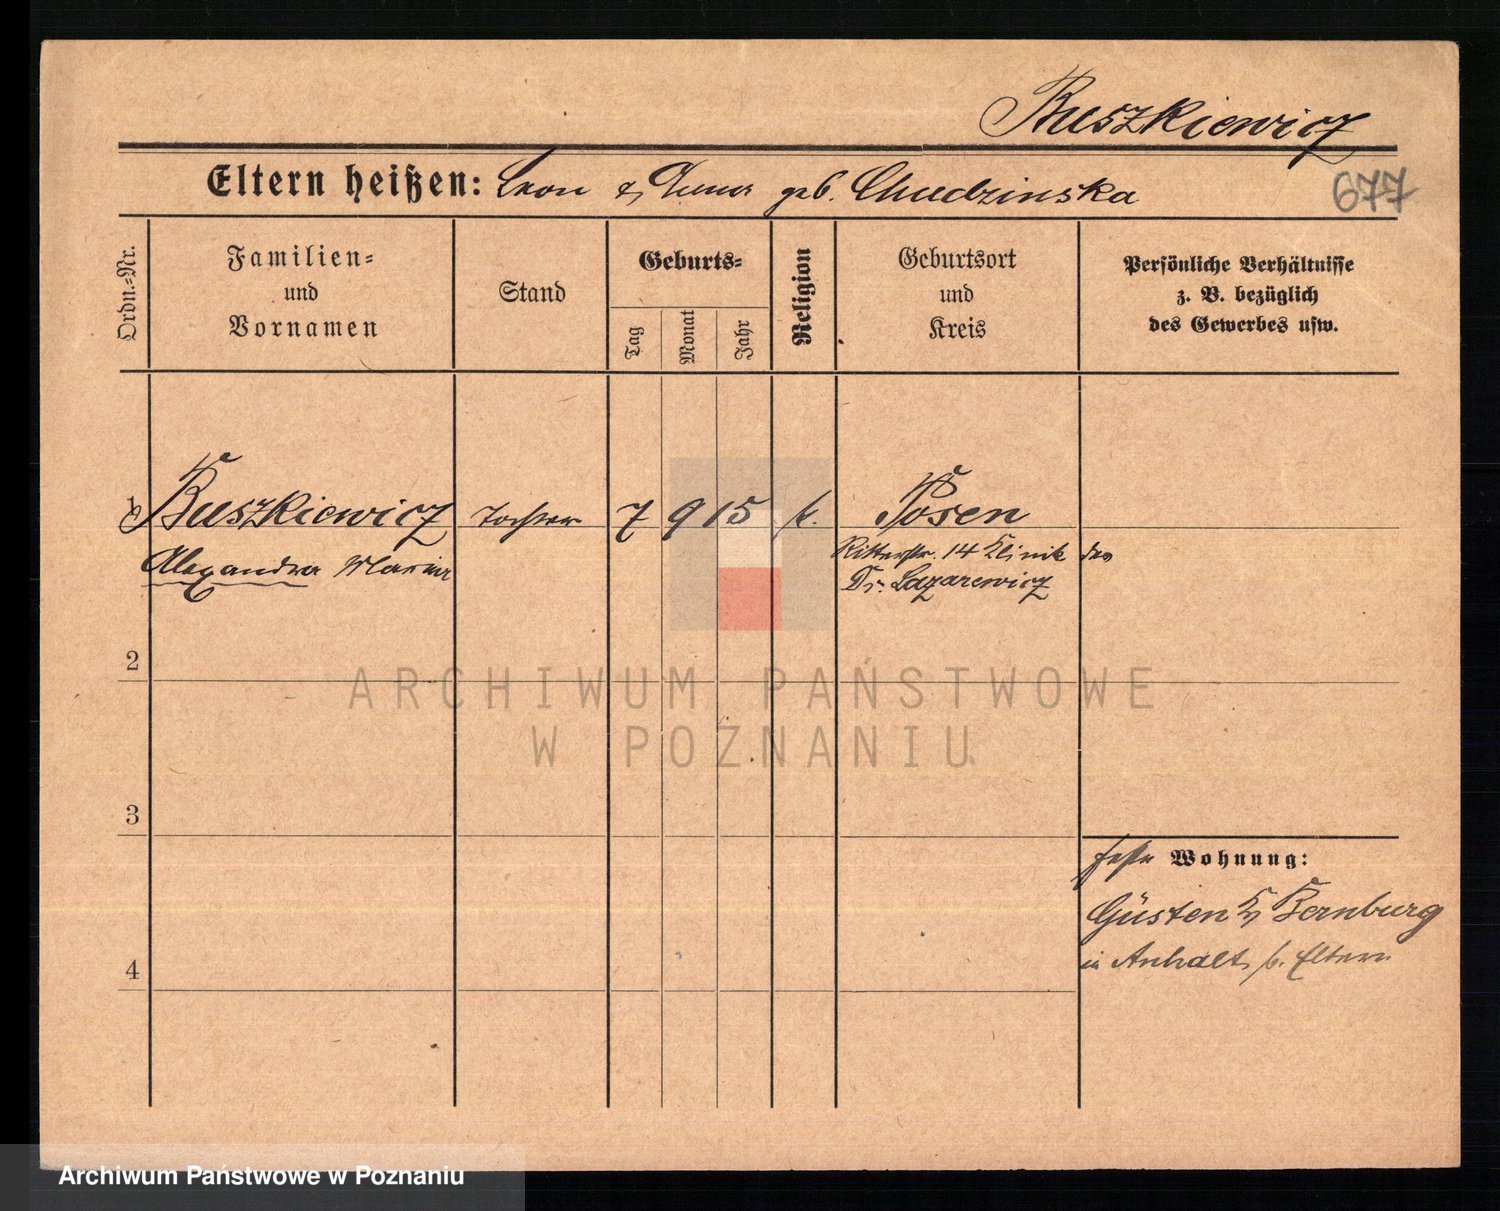 Buszkiewicz
Eltern heißen: Leon & Anna geb. Chudzinska
677
Ordn.-Nr.
Familien-
und
Vornamen
Stand
Geburts-
Tag
Monat
Jahr
Religion
Geburtsort
und
Kreis
Persönliche Verhältnisse
z. B. bezüglich
des Gewerbes usw.
1 Buszkiewicz Tochter 7 9 15 k. Posen
Alexandra Maria
Ritterstr. 14 Klinik des
Dr. Lazarewicz
2
3
4
feste Wohnung:
Güsten Kr Bernburg
in Anhalt, b. Eltern
ARCHIWUM PAŃSTWOWE
W POZNANIU
Archiwum Państwowe w Poznaniu